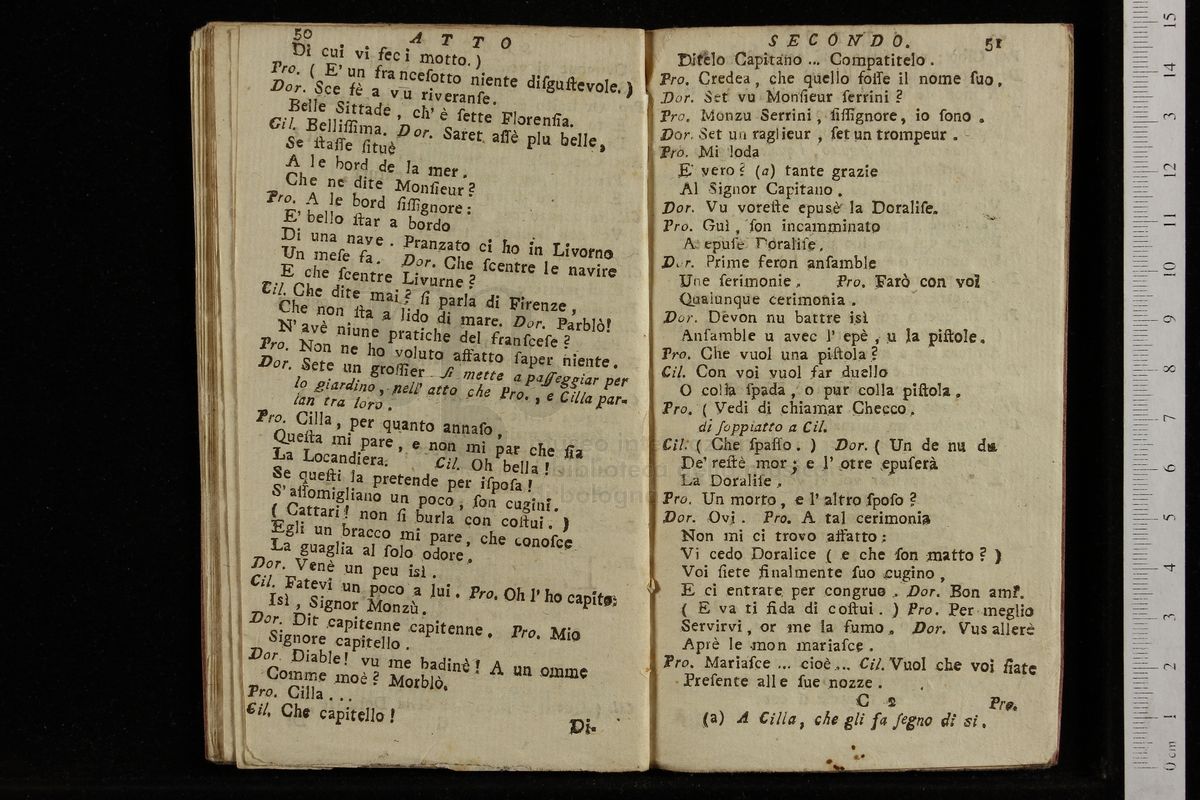 50 ATTO
Di cui vi feci motto.)
Pro. ( E' un francesotto niente disgustevole. )
Dor. Sce fè a vu riveranse.
Belle Sittade, ch' è sette Florensia.
Gil. Bellissima. Dor. Saret assè plu belle,
Se stasse situè
A le bord de la mer.
Che ne dite Monsieur?
Pro. A le bord sissignore:
E' bello star a bordo
Di una nave. Pranzato ci ho in Livorno
Un mese fa. Dor. Che scentre le navire
E che scentre Livurne?
Cil. Che dite mai? si parla di Firenze,
Che non sta a lido di mare. Dor. Parblò!
N' avè niune pratiche del franscese?
Pro. Non ne ho voluto affatto saper niente.
Dor. Sete un grossier si mette a passeggiar per
lo giardino, nell' atto che Pro., e Cilla par-
lan tra loro.
Pro. Cilla, per quanto annaso,
Questa mi pare, e non mi par che sia
La Locandiera. Cil. Oh bella!
Se questi la pretende per isposa!
S' assomigliano un poco, son cugini.
( Cattari! non si burla con costui. )
Egli un bracco mi pare, che conosce
La guaglia al solo odore.
Dor. Venè un peu isì.
Cil. Fatevi un poco a lui. Pro. Oh l' ho capito:
Isì, Signor Monzù.
Dor. Dit capitenne capitenne. Pro. Mio
Signore capitello.
Dor. Diable! vu me badinè! A un omme
Comme moè? Morblò.
Pro. Cilla...
Cil. Che capitello!
Di-
SECONDO. 51
Ditelo Capitano ... Compatitelo.
Pro. Credea, che quello fosse il nome suo.
Dor. Set vu Monsieur serrini?
Pro. Monzu Serrini, sissignore, io sono.
Dor. Set un raglieur, set un trompeur.
Pro. Mi loda
E' vero? (a) tante grazie
Al Signor Capitano.
Dor. Vu voreste epusè la Doralise.
Pro. Guì, son incamminato
A epuse Doralise.
Dor. Prime feron ansamble
Une serimonie. Pro. Farò con voi
Qualunque cerimonia.
Dor. Devon nu battre isì
Ansamble u avec l' epè, u la pistole.
Pro. Che vuol una pistola?
Cil. Con voi vuol far duello
O colla spada, o pur colla pistola.
Pro. ( Vedi di chiamar Checco.
di soppiatto a Cil.
Cil. ( Che spasso. ) Dor. ( Un de nu du
De' restè mor; e l' otre epuserà
La Doralise.
Pro. Un morto, e l' altro sposo?
Dor. Ovi. Pro. A tal cerimonia
Non mi ci trovo affatto:
Vi cedo Doralice ( e che son matto? )
Voi siete finalmente suo cugino,
E ci entrate per congruo. Dor. Bon amì.
( E va ti fida di costui. ) Pro. Per meglio
Servirvi, or me la fumo. Dor. Vus allerè
Aprè le mon mariasce.
Pro. Mariasce ... cioè... Cil. Vuol che voi siate
Presente alle sue nozze.
C 2 Pro.
(a) A Cilla, che gli fa segno di si.